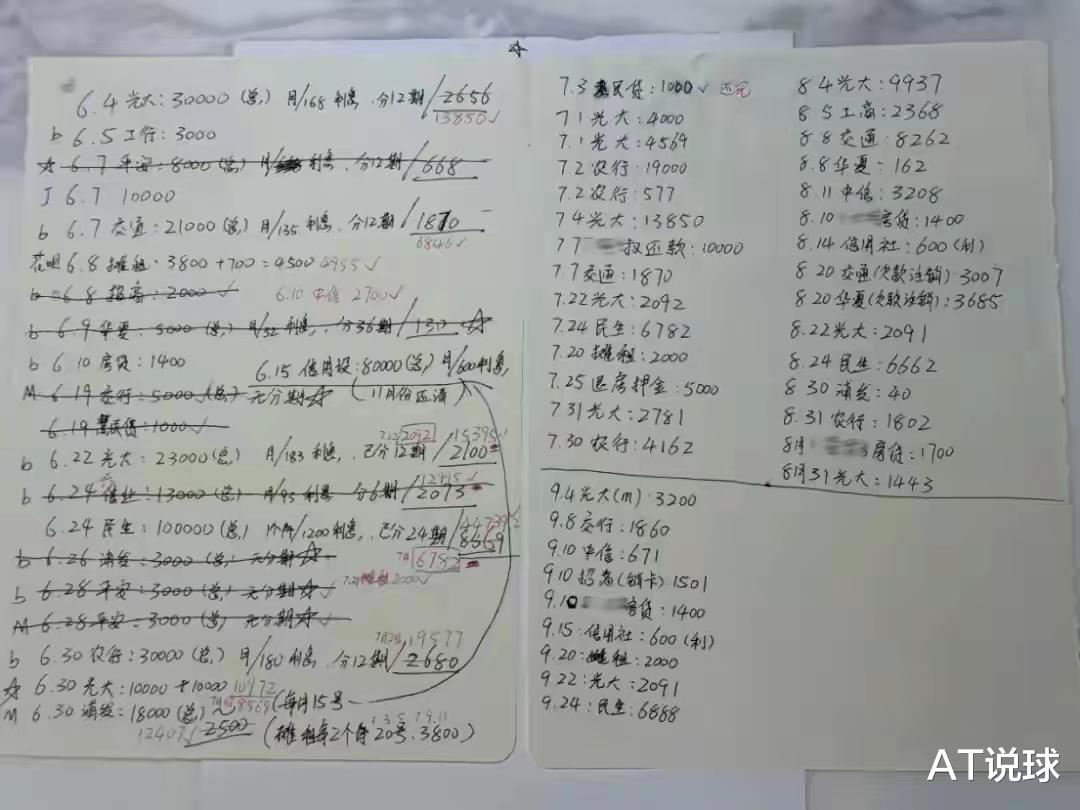 ☆
6.4 光大:30000(总) 月/168利息,分12期/2656
13850✓
b 6.5 工行:3000
☆ 6.7 平安:8000(总) 月/利息,分12期/668
J 6.7 10000
b 6.7 交通:21000(总) 月/135利息,分12期/1870
6846✓
花呗 6.8 摊租:3800+700=4500 4955✓
b 6.8 招商:2000✓ 6.10 中信 2700✓
b 6.9 华夏:5000(总) 月/32利息,分36期/130 ☆
b 6.10 房贷:1400
6.15 信用设:80000(总) 月/600利息,
M 6.19 交行:5000(总) 无分期☆ (11月份还清)
6.19 惠民贷:1000✓
7.22 2092 15395✓
b 6.22 光大:23000(总) 月/183利息,已分12期/2100
12915✓
b 6.24 信业:13000(总) 月/95利息 分6期/2073
6.24 民生:100000(总) 1个月/1200利息,已分24期/8669
b 6.26 浦发:3000(总) 无分期☆ 7月6782
b 6.28 平安:3000(总) 无分期☆✓ 7.20摊租2000✓
M 6.28 平安:3000(总) 无分期☆✓
7月2号19577
b 6.30 农行:30000(总) 月/180利息,分12期/2680
☆ 6.30 光大:10000+10000 10972
M 6.30 浦发:18000(总) 8569 (每月15号
12407✓ 2500 (摊租每2个月20号:3800)
1 3 5 7 9 11
7.3 惠民贷:1000✓ 还完
7.1 光大:4000
7.1 光大:4569
7.2 农行:19000
7.2 农行:577
7.4 光大:13850
7.7 叔还款:10000
7.7 交通:1870
7.22 光大:2092
7.24 民生:6782
7.20 摊租:2000
7.25 退房押金:5000
7.31 光大:2781
7.30 农行:4162
8.4 光大:9937
8.5 工商:2368
8.8 交通:8262
8.8 华夏:162
8.11 中信:3208
8.10 房贷:1400
8.14 信用社:600(利)
8.20 交通(欠款注销):3007
8.20 华夏(欠款注销):3685
8.22 光大:2091
8.24 民生:6662
8.30 浦发:40
8.31 农行:1802
8月 房贷:1700
8月31 光大:1443
9.4 光大(m):3200
9.8 交行:1860
9.10 中信:671
9.10 招商(销卡)1501
9.10 房贷:1400
9.15:信用社:600(利)
9.20:摊租:2000
9.22:光大:2091
9.24:民生:6888
AT说球